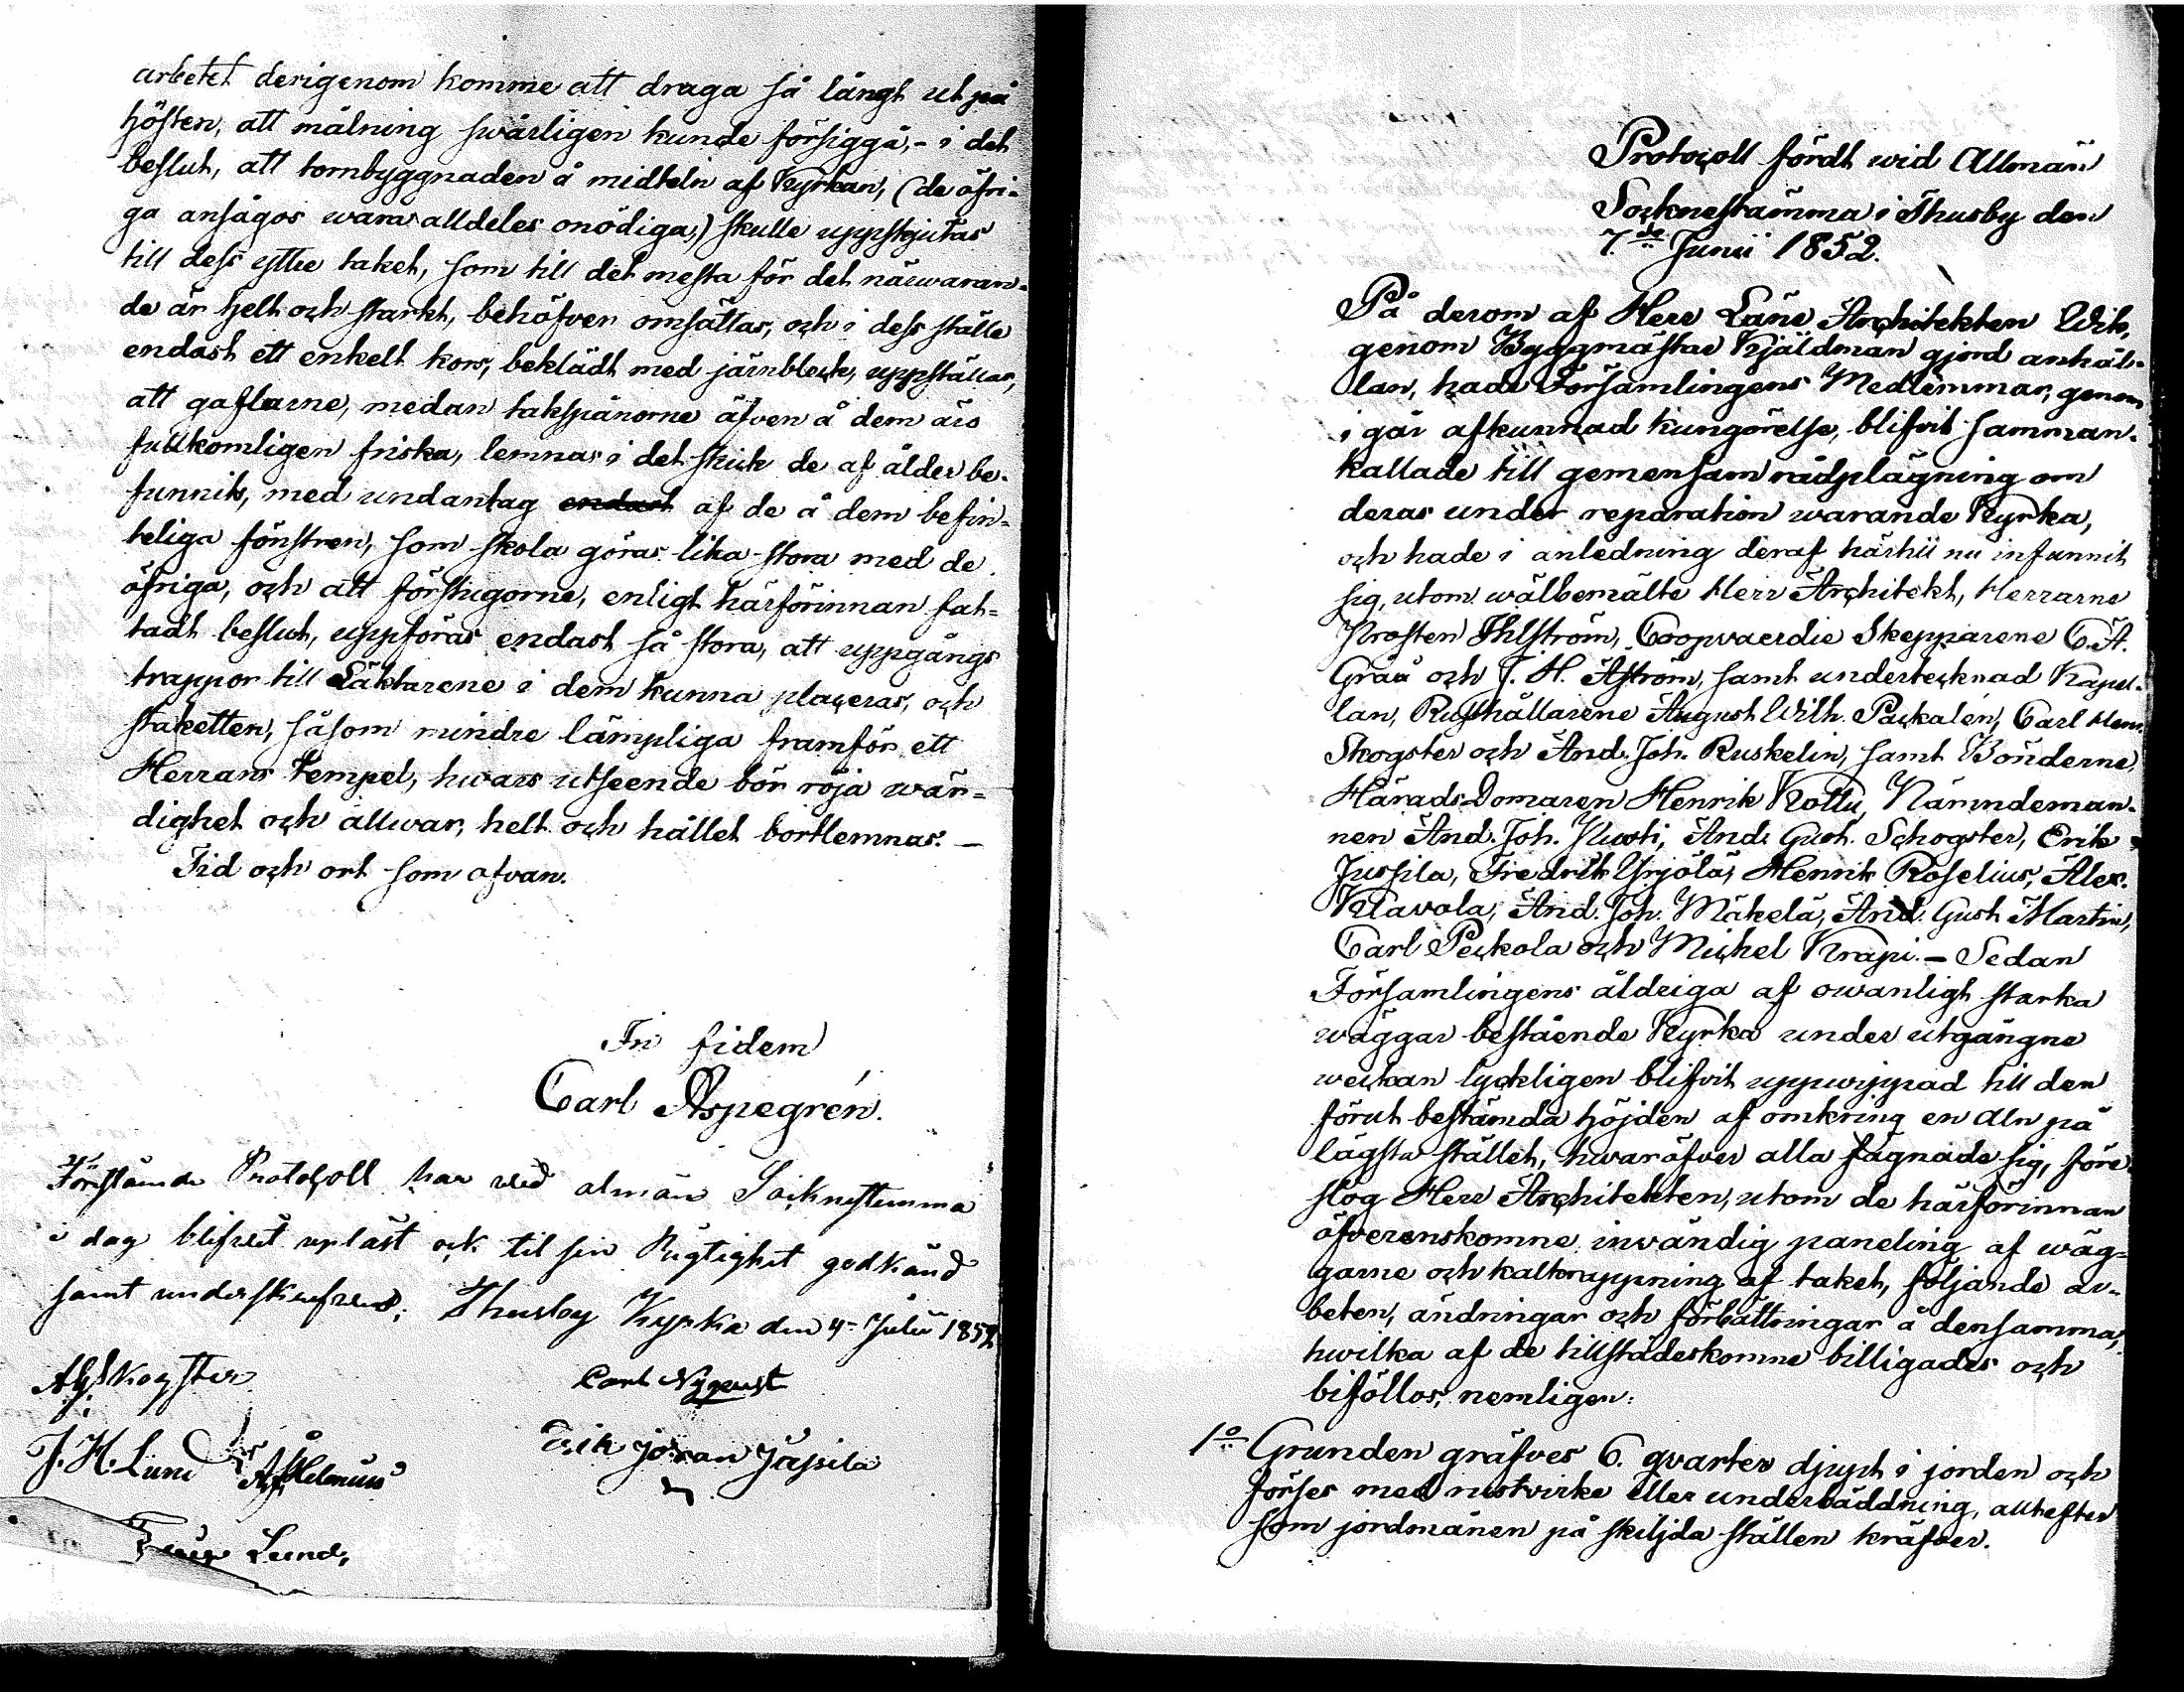 arbetet derigenom komme att draga så långt ut på
hösten, att målning swårligen kunde försiggå, - i det
beslut, att tornbyggnaden å midteln af Kyrkan, (de öfri-
ga ansågos wara alldeles onödiga,) skulle uppskjutas
till dess yttre taket, som till det mesta för det närwaran-
de är helt och starkt, behöfver omsättas, och i dess ställe
endast ett enkelt kors, beklädt med järnbleck, uppställas,
att gaflarne, medan takspånorne äfven å dem äro
fullkomligen friska, lemnas i det skick de af ålder be-
funnits, med undantag endast af de å dem befin-
teliga fönstren, som skola göras lika stora med de
öfriga, och att förstugorne, enligt härförinnan fat-
tadt beslut, uppföras endast så stora, att uppgångs
trappor till Läktarene i dem kunna placeras, och
staketten, såsom mindre lämpliga framför ett
Herrans tempel, hwars utseende bör röja wär-
dighet och allwar, helt och hållet bortlemnas. -
Tid och ort som ofvan.
In fidem
Carl Aspegrén.
Förestående Protocoll har wid alman Socknestemma
i dag blifvit upläst ock til sin Rigtighet godkänd
samt underskrefven; Thusby Kyrka den 4 Julii 1852
Skogster
Carl Nyqvist
J. H. Lund
Erik Johan Jussila
Lund,
Protocoll fördt wid Allmän
Socknestämma i Thusby den
7.de Junii 1852.
På derom af Herr Läns Architekten Wik,
genom Byggmästar Kjäldman gjord anhål-
lan, hade Församlingens Medlemmar, genom
i går afkunnad kungörelse, blifvit samman-
kallade till gemensam rådplägning om
deras under reparation warande Kyrka,
och hade i anledning deraf härtill nu infunnit
sig, utom wälbemälte Herr Architekt, Herrarne
Prosten Ihlström, Coopvaerdie Skepparene C. A.
Grå och J. H. Åström, samt undertecknad Kapel-
lan, Rusthållarene August Wilh. Packalén, Carl Henr.
Skogster och And. Joh. Ruskelin, samt Bönderne,
Härads Domaren Henrik Kottu, Nämndeman-
nen And. Joh. Klusti, And. Gust. Schogster, Erik
Jussila, Fredrik Yrjölä, Henrik Roselius, Alex.
Klavola, And. Joh. Mäkelä, And. Gust Martin,
Carl Peckola och Michel Krapi. - Sedan
Församlingens åldriga af owanligt starka
wäggar bestående Kyrka under utgångne
weckan lyckligen blifvit uppwippad till den
förut bestämda höjden af omkring en aln på
lägsta stället, hwaröfver alla fägnade sig, före-
slog Herr Architekten, utom de härförinnan
öfverenskomne invändig paneling af wäg-
garne och kaltrappning af taket, följande ar-
beten, ändringar och förbättringar å densamma,
hwilka af de tillstädeskomne billigades och
biföllos, nemligen:
1o Grunden gräfves 6. qvarter djupt i jorden och
förses med rustvirke eller underbäddning, allt efter
som jordmånen på skiljda ställen kräfver.